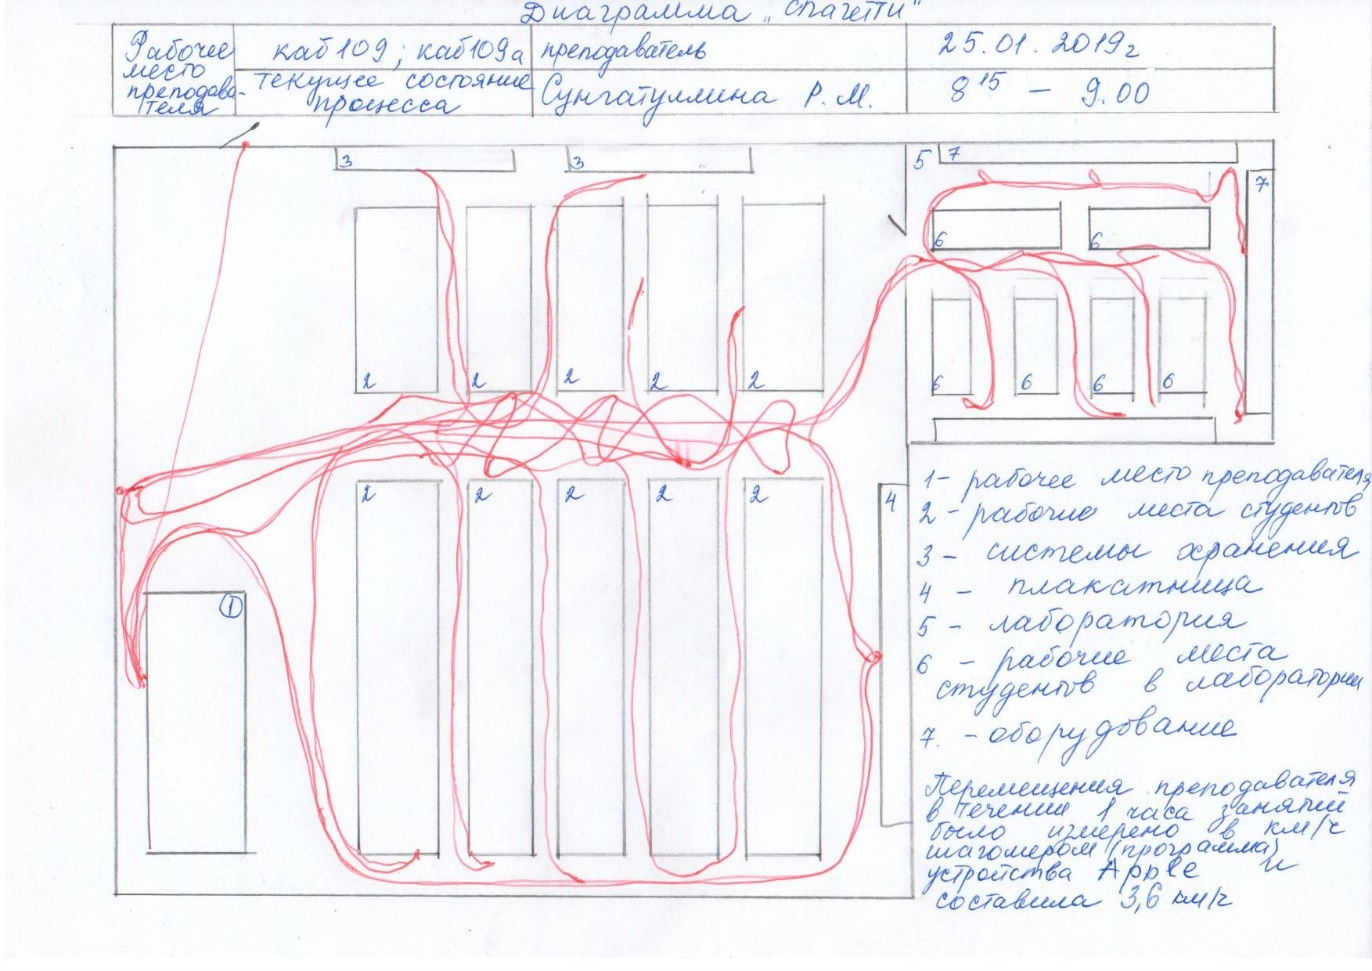 Диаграмма „Спагетти"
Рабочее место преподава-теля
каб 109; каб 109а
преподаватель
25.01.2019г
текущее состояние процесса
Сунгатуллина Р.М.
8 15 – 9.00
3
3
5
7
7
6
6
2
2
2
2
2
6
6
6
6
2
2
2
2
2
4
1
1- рабочее место преподавателя
2 - рабочие места студентов
3 - системы хранения
4 - плакатница
5 - лаборатория
6 - рабочие места
студентов в лаборатории
7. - оборудование
Перемещения преподавателя
в течении 1 часа занятий
было измерено в км/ч
шагомером (программа)
устройства Apple и
составила 3,6 км/ч